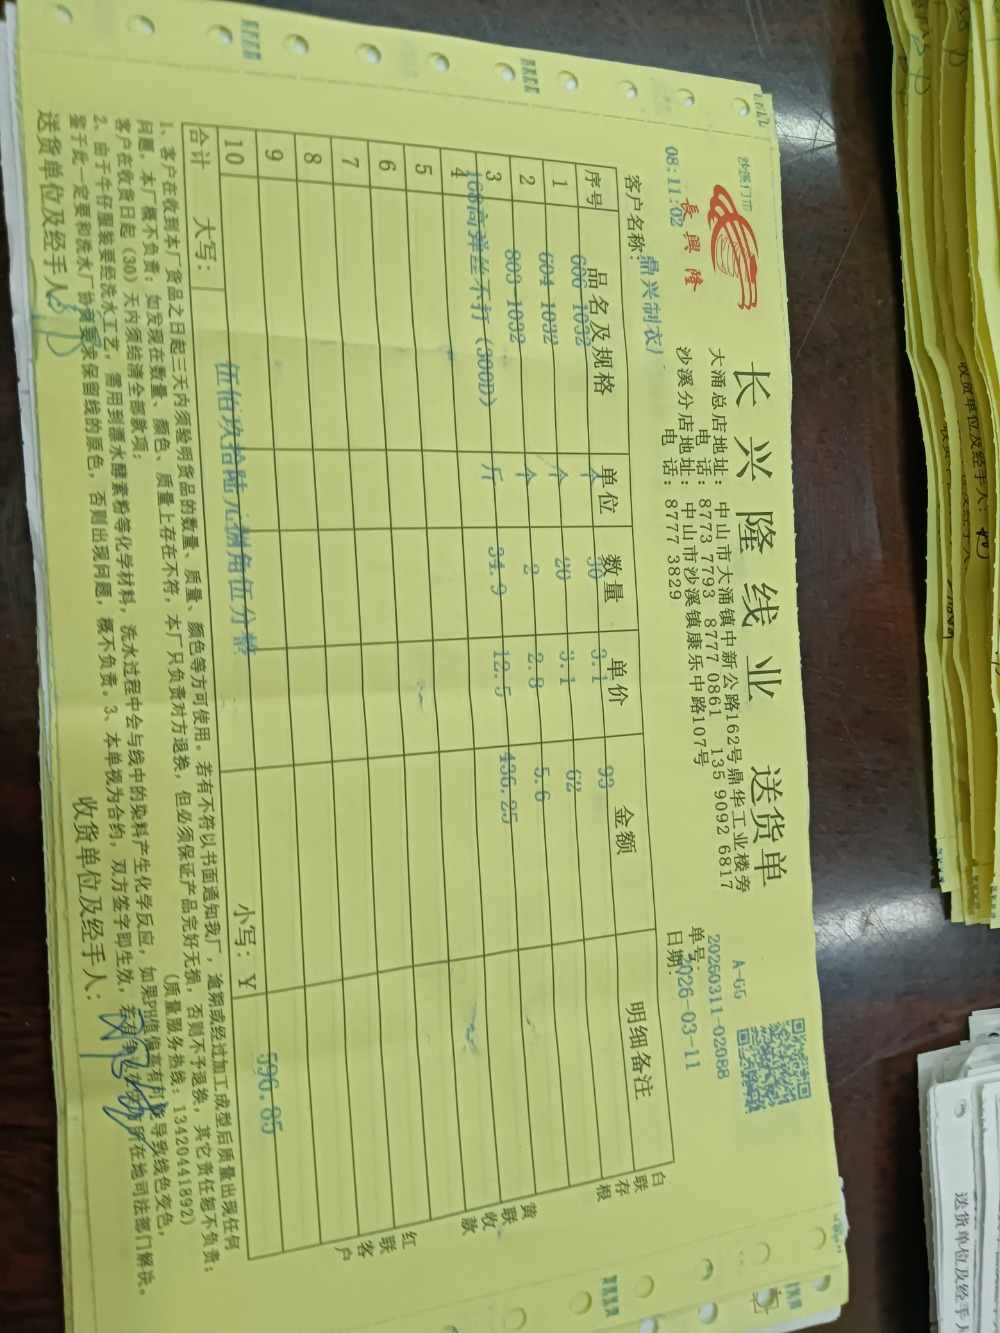 沙溪门市
08:11:02
長興隆
长兴隆线业 送货单
大涌总店地址：中山市大涌镇中新公路162号鼎华工业楼旁
电话：8773 7793 8777 0861 135 9092 6817
沙溪分店地址：中山市沙溪镇康乐中路107号
电话：8777 3829
A-G5
单号：20260311-02088
日期：2026-03-11
客户名称：鼎兴制衣厂
序号 品名及规格 单位 数量 单价 金额 明细备注
1 606 1032 个 30 3.1 93
2 604 1032 个 20 3.1 62
3 803 1032 个 2 2.8 5.6
4 168高弹丝不打（300D） 斤 34.9 12.5 436.25
5
6
7
8
9
10
合计 大写： 伍佰玖拾陆元捌角伍分整 小写：￥ 596.85
1、客户在收到本厂货品之日起三天内须验明货品的数量、质量、颜色等方可使用。若有不符以书面通知我厂，逾期或经过加工成型后质量出现任何
问题，本厂概不负责；如发现在数量、颜色、质量上存在不符，本厂只负责对方退换，但必须保证产品完好无损，否则不予退换，其它责任恕不负责；
客户在收货日起（30）天内须结清全部款项； （质量服务热线：13420441892）
2、由于牛仔服装要经洗水工艺，需用到漂水酵素粉等化学材料，洗水过程中会与线中的染料产生化学反应，如果PH值偏高有可能导致线色变色，
鉴于此一定要和洗水厂协商要求保留线的原色，否则出现问题，概不负责。3、本单视为合约，双方签字即生效，若有争议 所在地司法部门解决。
送货单位及经手人： 收货单位及经手人：
白联存根
黄联收款
红联客户
收货单位及经手人：
送货单位及经手人